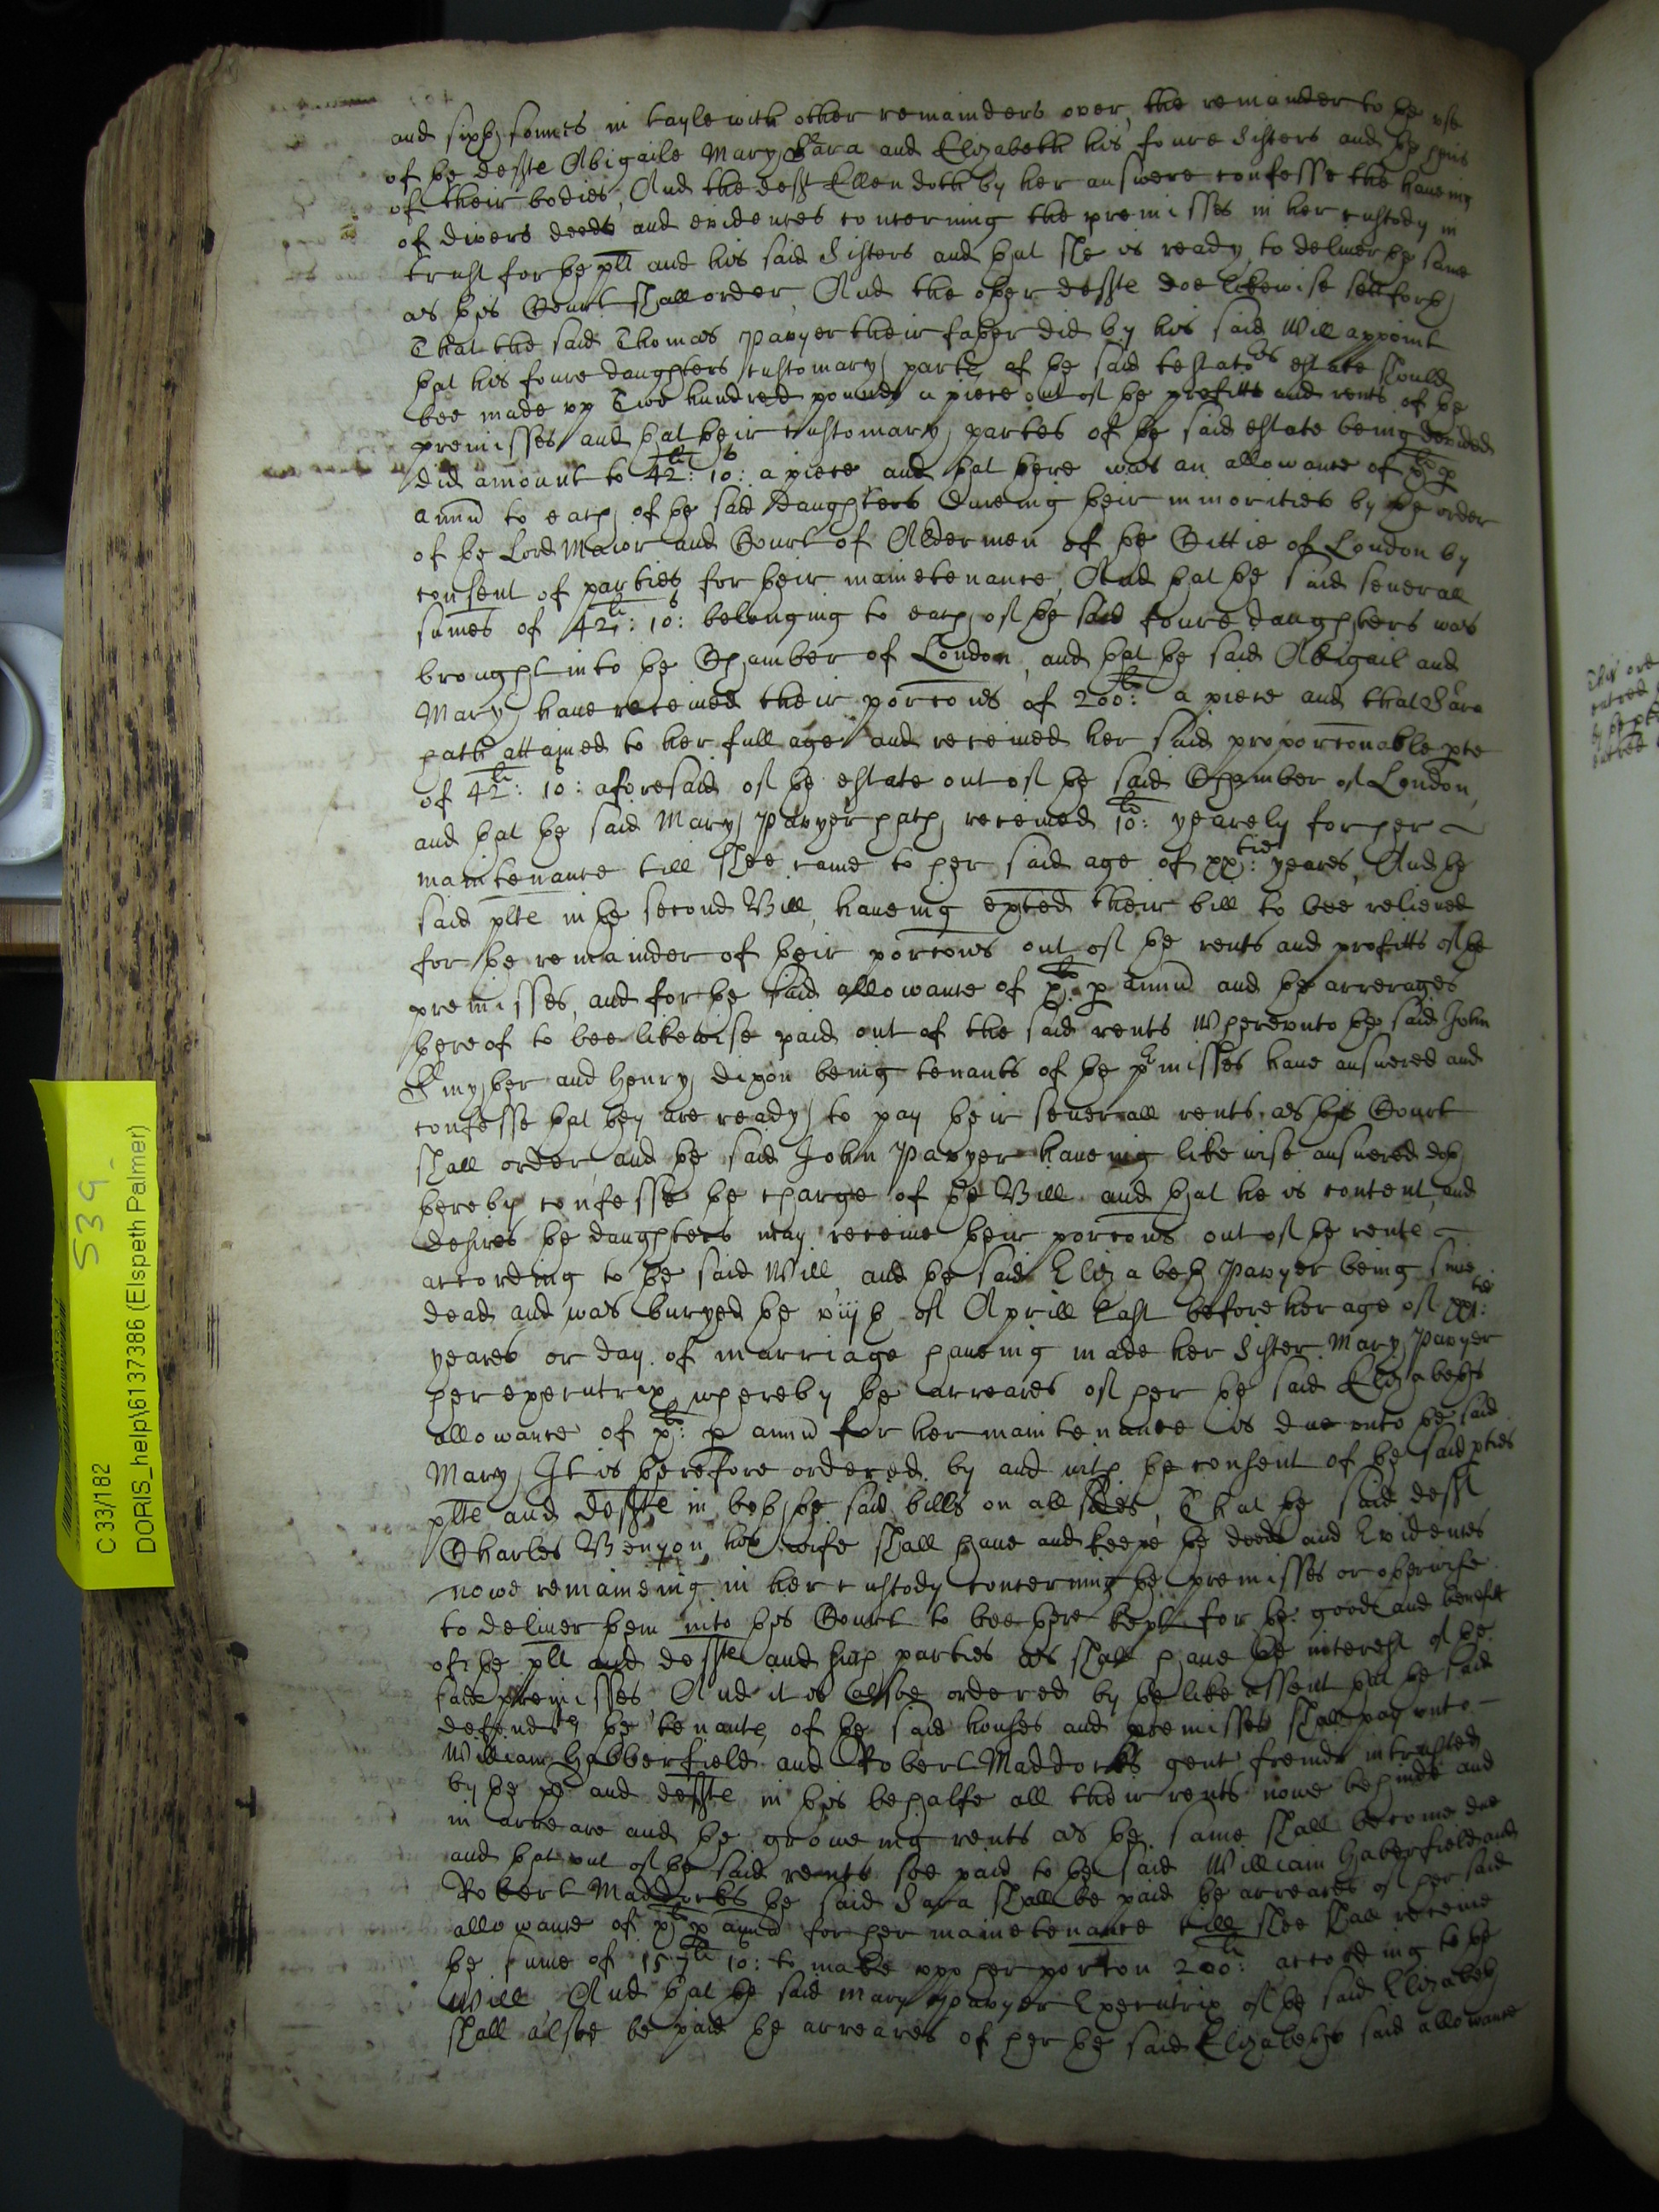 and sixth sonnes in tayle with other remainders over, the remainder to the use
of the defts Abigaile Mary Sara and Elizabeth his foure Sisters and the heirs
of their bodies, And the deft Ellen doth by her answere confesse the haveing
of divers deeds and evidences concerning the premisses in her custody in
trust for the plt and his said Sisters and that she is ready to deliver the same
as this Court shall order, And the other defts doe likewise sett forth
That the said Thomas Pavyer their father did by his said Will appoint
that his foure daughters customary parts of the said testators estate should
bee made vp Two hundred pounds a piece out of the profitts and rents of the
premisses and that their customary partes of the said estate being devided
did amount to 42li: 10s: a piece and that there was an allowance of xli p
annu to each of the said daughters dureing their minorities by the order
of the Lord Maior and Court of Aldermen of the Cittie of London by
consent of parties for their maintenance, And that the said severall
sumes of 42li: 10s: belonging to each of the said foure daughters was
brought into the Chamber of London, and that the said Abigail and
Mary have received their porcons of 200li: a piece and that Sara
hath attained to her full age and received her said proporconable pte
of 42li: 10s: aforesaid of the estate out of the said Chamber of London,
and that the said Mary Pavyer hath received 10li: yearely for her
maintenance till shee came to her said age of xxtie: yeares, And the
said plts in the second Bill, haveing their bill to bee relieved
for the remainder of their porcons out of the rents and profitts of the
premisses, and for the said allowance of xli: p annu and the arrerages
thereof to bee likewise paid out of the said rents Wherevnto the said John
and Henry Dixon being tenants of the pmisses have answered and
confesse that they are ready to pay their severall rents as this Court
shall order and the said John Pavyer haveing likewise answered doth
thereby confesse the charge of the Bill and that he is content and
desires the daughters may receive their porcons out of the rents
according to the said Will and the said Elizabeth Pavyer being since
dead and was buryed the viijth of Aprill last before her age of xxj:
yeares or day of marriage haveing made her Sister Mary Pavyer
her executrix whereby the arreares of her the said Elizabeths
allowance of xli: p annu for her maintenance is due vnto the said
Mary, It is therefore ordered by and with the consent of the said pties
plts and defts in both the said bills on all sides, That the said deft
Charles Benyon his wife shall have and keepe the deeds and Evidences
nowe remaineing in her custody concerning the premisses or otherwise
to deliver them into this Court to bee there kept for the good and benefitt
of the plt and defts and such parties as shall have the interest of the
said premisses And it is alsoe ordered by the like assent that the said
defendts the tenants of the said houses and premisses shall pay vnto
William Habberfield and Robert Maddocks gent freinds intrusted
by the plt and defts in this behalfe all their rents nowe behinde and
in arreare and the groweing rents as the same shall become due
and that out of the said rents soe paid to the said William Haberfield and
Robert Maddocks the said Sara shall be paid the arreares of her said
allowance of xli p annu for her maintenance till shee shall receive
the sume of 157li 10: to make vpp her porcon 200li: according to the
Will, And that the said Mary Pavyer Executrix of the said Elizabeth
shall alsoe be paid the arreares of her the said Elizabeths said allowance
539
C 33/182
DORIS_help\6137386 (Elspeth Palmer)